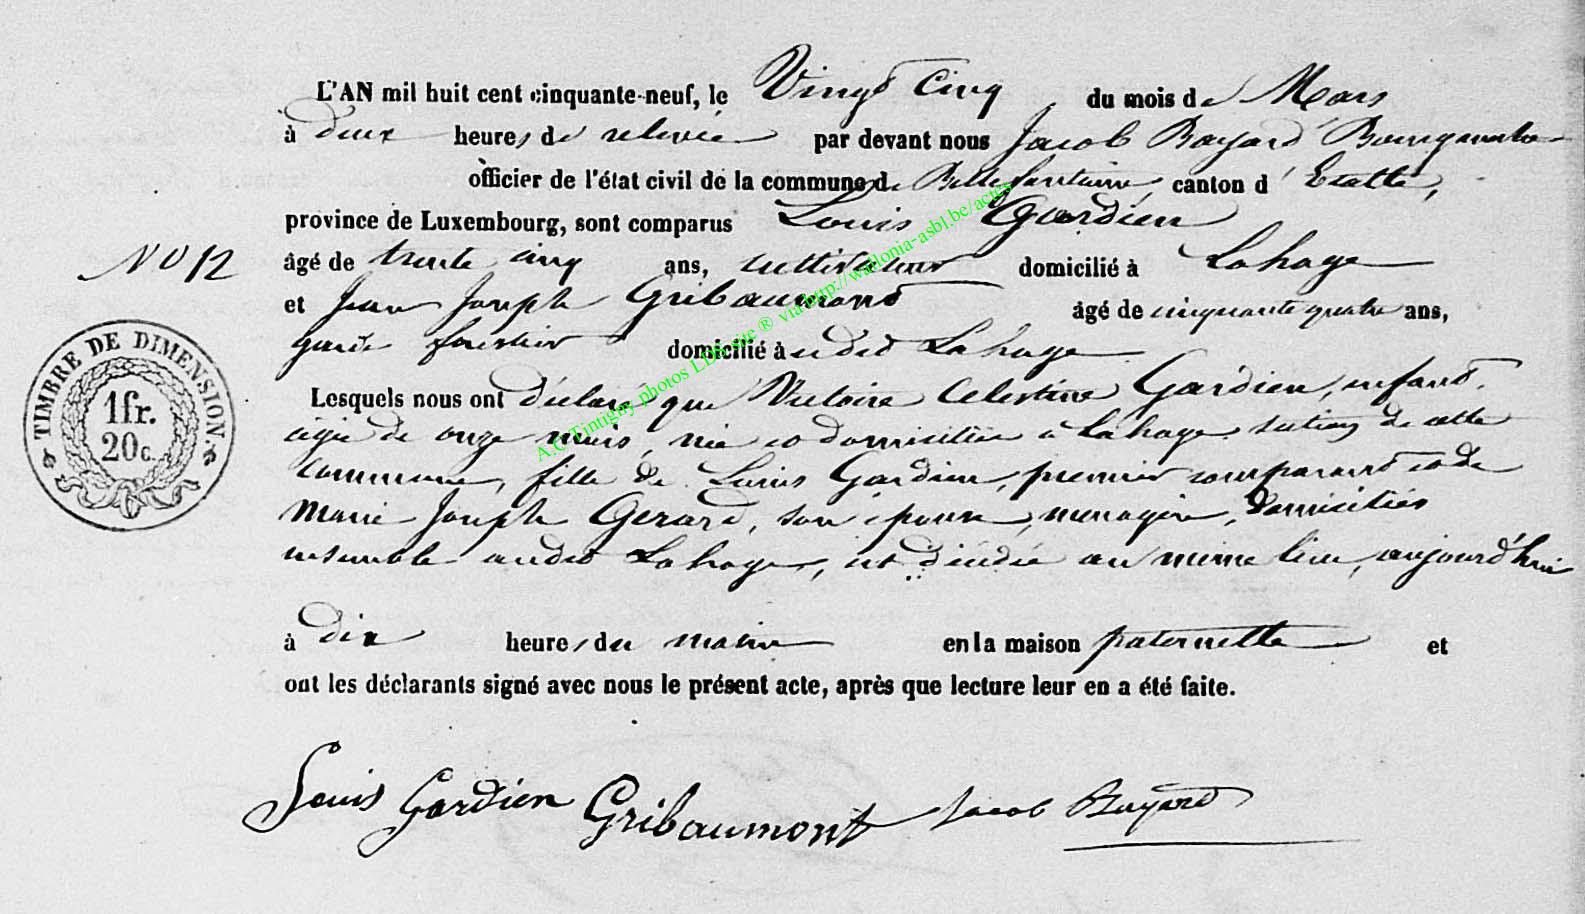 L'AN mil huit cent cinquante-neuf, le Vingt Cinq du mois de Mars
à deux heures de relevée par devant nous Jacob Bayard Bourgmestre
officier de l'état civil de la commune de Bellefontaine, canton d'Etalle,
province de Luxembourg, sont comparus Louis Gardien
N° 12
âgé de trente cinq ans, cultivateur domicilié à Lahage
et Jean Joseph Gribaumont âgé de cinquante quatre ans,
garde forestier domicilié à udit Lahage
Lesquels nous ont déclaré que Victoire Celestine Gardien, enfant
agée de onze mois, née et domiciliée à Lahage section de cette
commune, fille de Louis Gardien, premier comparant et de
Marie Joseph Gerard, son épouse, menagère, domiciliés
ensemble audit Lahage, est décédée au même lieu, aujourd'hui
à dix heures du matin en la maison paternelle et
ont les déclarants signé avec nous le présent acte, après que lecture leur en a été faite.
Louis Gardien Gribaumont Jacob Bayard
TIMBRE DE DIMENSION.
1fr.
20c.
A.C. Tintigny photos LDS site ® via http://wallonia-asbl.be/actes